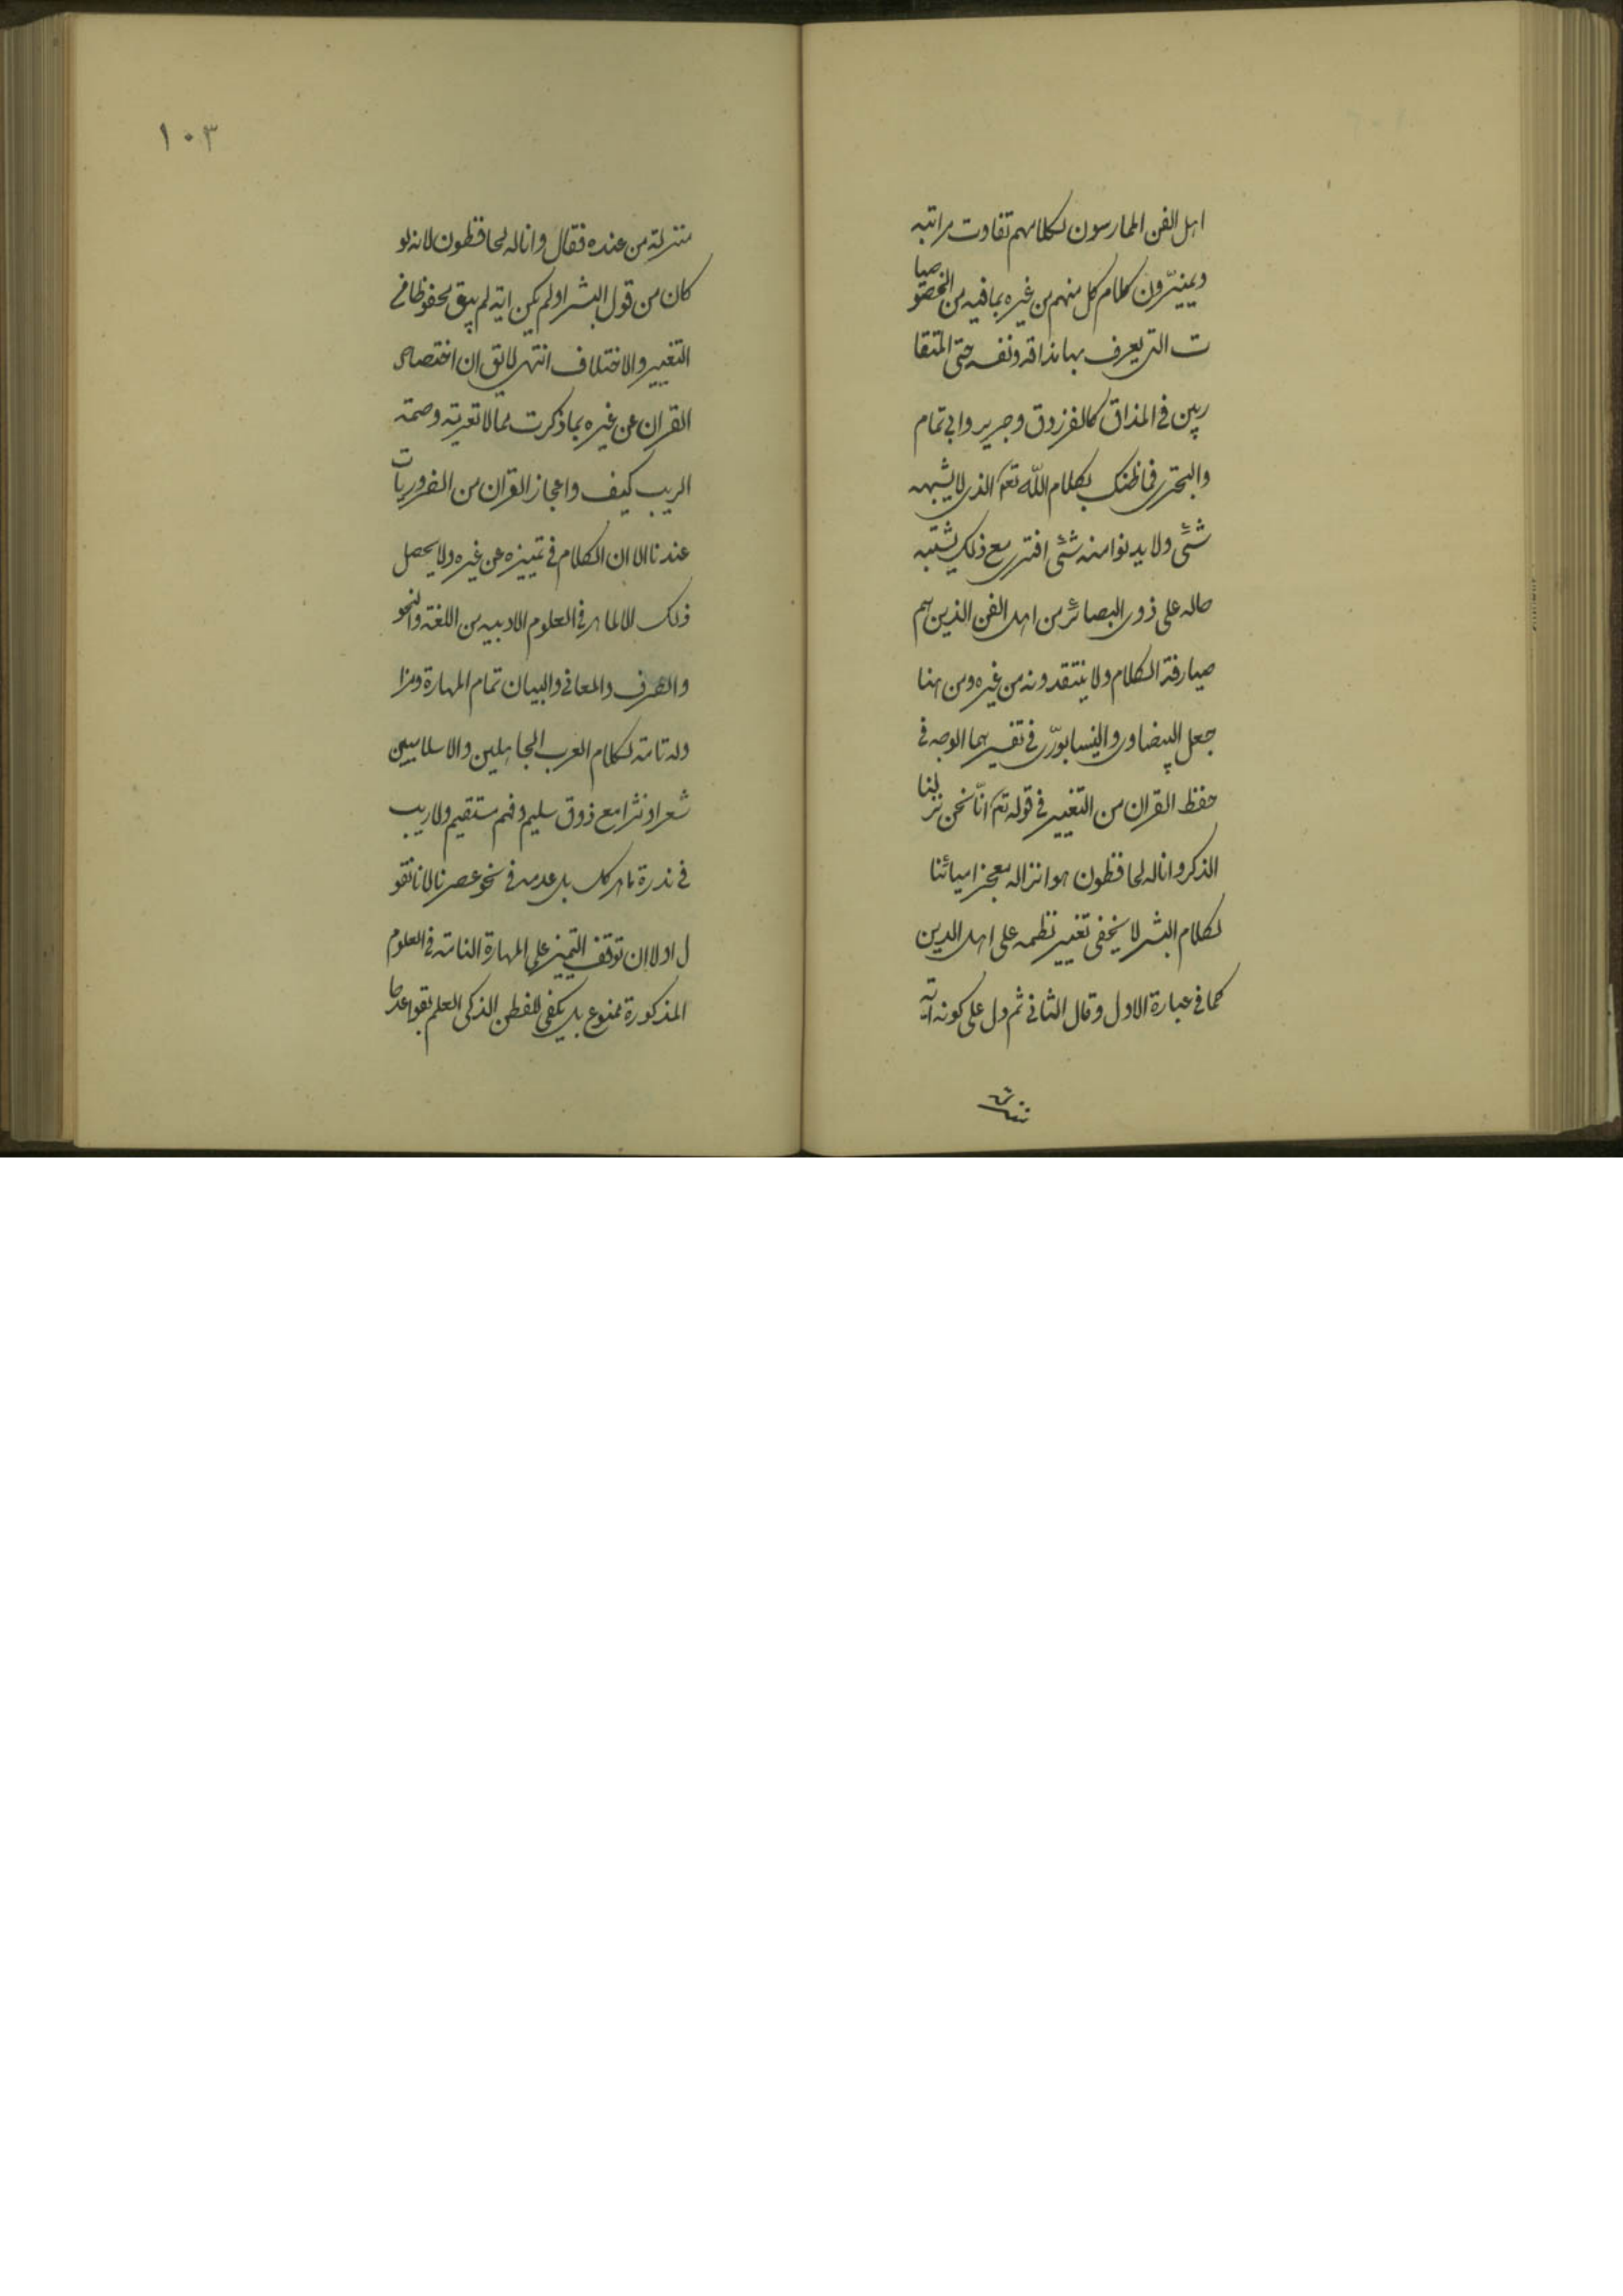 اهل الفن الممارسون لكلامهم تفاوت مراتبه
ويميّزون كلام كل منهم من غيره بما فيه من الخصوصيا
ت التى يعرف بها مذاقه ونفسه حتى المتقا
ربين فى المذاق كالفرزدق وجرير وابى تمام
والبحترى فما ظنك بكلام اللّه تعم الذى لا يشبهه
شئ ولا يدنو منه شئ افترى مع ذلك يشتبه
حاله على ذوى البصائر من اهل الفن الذين هم
صيارفة الكلام ولا ينتقدونه من غيره ومن هنا
جعل البيضاوى والنيسابورّى فى تفسيرهما الوجه فى
حفظ القران من التغيير فى قوله تع انّا نحن نزلنا
الذكر وانا له لحافظون هو انزاله معجزا مبائنا
لكلام البشر لا يخفى تغيير نظمه على اهل الدين
كما فى عبارة الاول وقال الثانى ثم دل على كونه اية
منزلة
١٠٣
منزلة من عنده فقال وانا له لحافظون لانه لو
كان من قول البشر او لم يكن اية لم يبق محفوظا فى
التغيير والاختلاف انتهى لا يق ان اختصاص
القران عن غيره بما ذكرت مما لا تعريه وصمة
الريب كيف واعجاز القران من الضروريات
عندنا الا ان الكلام فى تمييزه عن غيره ولا يحصل
ذلك الا لماهر فى العلوم الادبيه من اللغة والنحو
والصرف والمعانى والبيان تمام المهارة ومزا
ولة تامة لكلام العرب الجاهلين والاسلاميين
شعرا ونثرا مع ذوق سليم وفهم مستقيم ولا ريب
فى ندرة ماهر كك بل عدمه فى نحو عصرنا لانا نقو
ل اولا ان توقف التميز على المهارة التامة فى العلوم
المذكورة ممنوع بل يكفى للفطن الذكى العلم بقواعدها